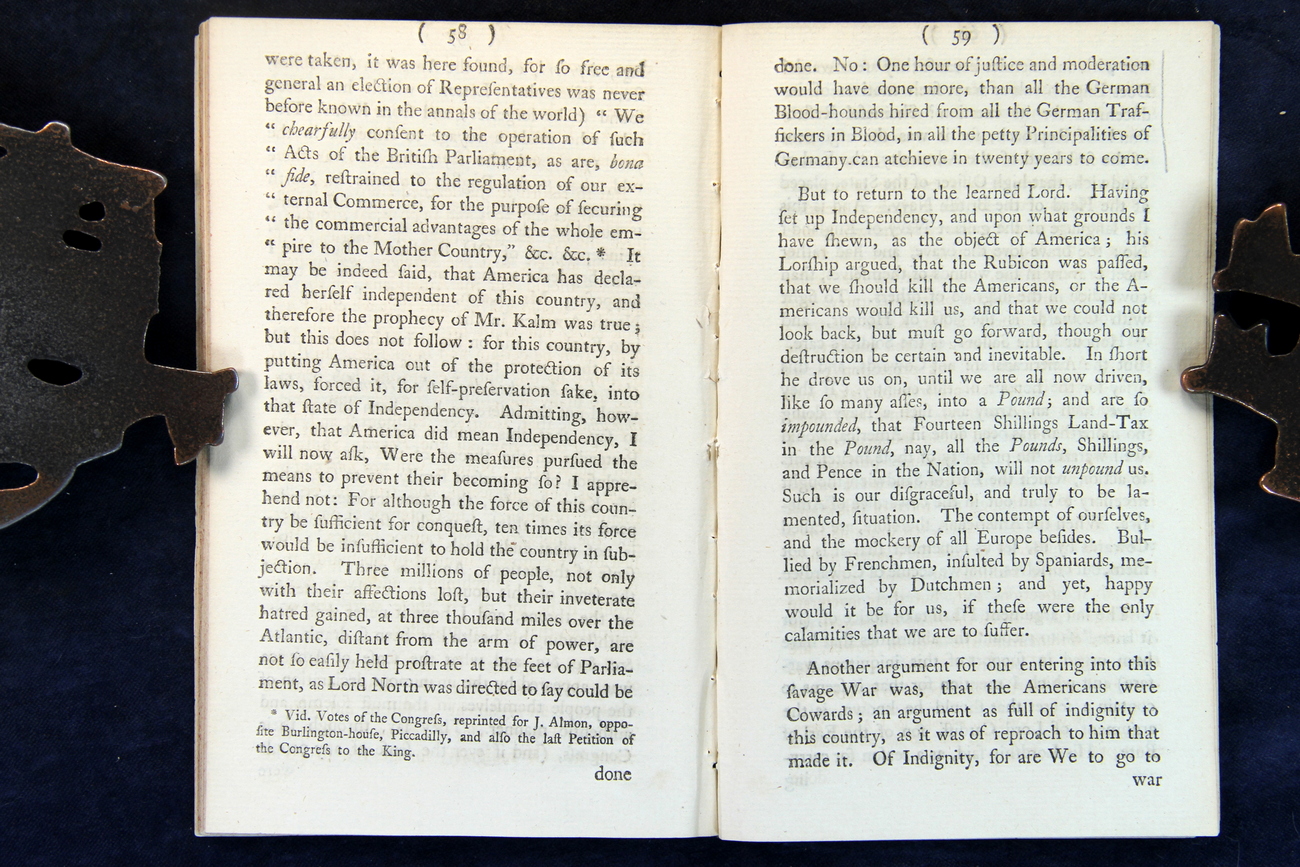 ( 58 )
were taken, it was here found, for ſo free and
general an election of Repreſentatives was never
before known in the annals of the world) “ We
“ chearfully conſent to the operation of ſuch
“ Acts of the Britiſh Parliament, as are, bona
“ fide, reſtrained to the regulation of our ex-
“ ternal Commerce, for the purpoſe of ſecuring
“ the commercial advantages of the whole em-
“ pire to the Mother Country,” &c. &c. * It
may be indeed ſaid, that America has decla-
red herſelf independent of this country, and
therefore the prophecy of Mr. Kalm was true;
but this does not follow: for this country, by
putting America out of the protection of its
laws, forced it, for ſelf-preſervation ſake, into
that ſtate of Independency. Admitting, how-
ever, that America did mean Independency, I
will now aſk, Were the meaſures purſued the
means to prevent their becoming ſo? I appre-
hend not: For although the force of this coun-
try be ſufficient for conqueſt, ten times its force
would be inſufficient to hold the country in ſub-
jection. Three millions of people, not only
with their affections loſt, but their inveterate
hatred gained, at three thouſand miles over the
Atlantic, diſtant from the arm of power, are
not ſo eaſily held proſtrate at the feet of Parlia-
ment, as Lord North was directed to ſay could be
* Vid. Votes of the Congreſs, reprinted for J. Almon, oppo-
ſite Burlington-houſe, Piccadilly, and alſo the laſt Petition of
the Congreſs to the King.
done
( 59 )
done. No: One hour of juſtice and moderation
would have done more, than all the German
Blood-hounds hired from all the German Traf-
fickers in Blood, in all the petty Principalities of
Germany.can atchieve in twenty years to come.
But to return to the learned Lord. Having
ſet up Independency, and upon what grounds I
have ſhewn, as the object of America; his
Lorſhip argued, that the Rubicon was paſſed,
that we ſhould kill the Americans, or the A-
mericans would kill us, and that we could not
look back, but muſt go forward, though our
deſtruction be certain and inevitable. In ſhort
he drove us on, until we are all now driven,
like ſo many aſſes, into a Pound; and are ſo
impounded, that Fourteen Shillings Land-Tax
in the Pound, nay, all the Pounds, Shillings,
and Pence in the Nation, will not unpound us.
Such is our diſgraceful, and truly to be la-
mented, ſituation. The contempt of ourſelves,
and the mockery of all Europe beſides. Bul-
lied by Frenchmen, inſulted by Spaniards, me-
morialized by Dutchmen; and yet, happy
would it be for us, if theſe were the only
calamities that we are to ſuffer.
Another argument for our entering into this
ſavage War was, that the Americans were
Cowards; an argument as full of indignity to
this country, as it was of reproach to him that
made it. Of Indignity, for are We to go to
war